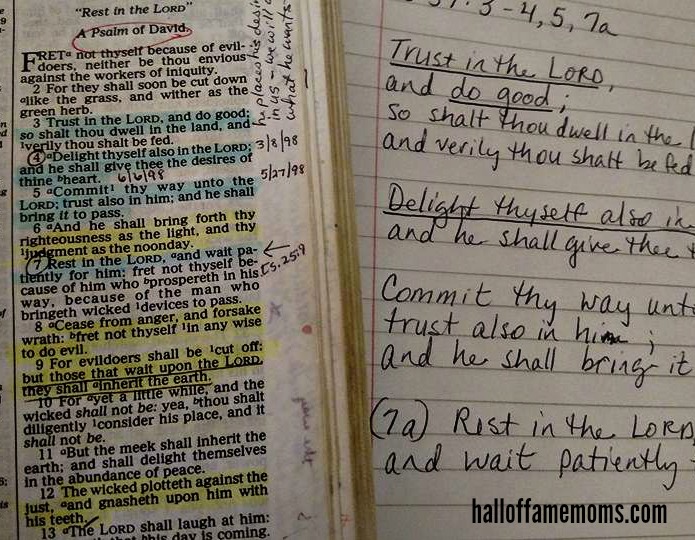 "Rest in the LORD"
A Psalm of David.
FRETa not thyself because of evil-
doers, neither be thou envious
against the workers of iniquity.
2 For they shall soon be cut down
alike the grass, and wither as the
green herb.
3 Trust in the LORD, and do good;
so shalt thou dwell in the land, and
verily thou shalt be fed.
4 aDelight thyself also in the LORD;
and he shall give thee the desires of
thine bheart.
5 aCommit 1thy way unto the
LORD; trust also in him; and he shall
bring it to pass.
6 aAnd he shall bring forth thy
righteousness as the light, and thy
1judgment as the noonday.
7 Rest in the LORD, aand wait pa-
tiently for him: fret not thyself be-
cause of him who bprospereth in his
way, because of the man who
bringeth wicked 1devices to pass.
8 aCease from anger, and forsake
wrath: bfret not thyself 1in any wise
to do evil.
9 For evildoers shall be 1cut off:
but those that wait upon the LORD,
they shall ainherit the earth.
10 For ayet a little while, and the
wicked shall not be: yea, bthou shalt
diligently 1consider his place, and it
shall not be.
11 aBut the meek shall inherit the
earth; and shall delight themselves
in the abundance of peace.
12 The wicked plotteth against the
just, aand gnasheth upon him with
his teeth.
13 aThe LORD shall laugh at him:
that his day is coming.
he places his desi
in us - we will
what he wants
3/8/98
6/6/98
5/27/98
Is. 25:9
: 3-4, 5, 7a
Trust in the LORD,
and do good;
so shalt thou dwell in the
and verily thou shalt be fed
Delight thyself also in
and he shall give thee
Commit thy way unt
trust also in him;
and he shall bring it
(7a) Rest in the LORD,
and wait patiently
halloffamemoms.com